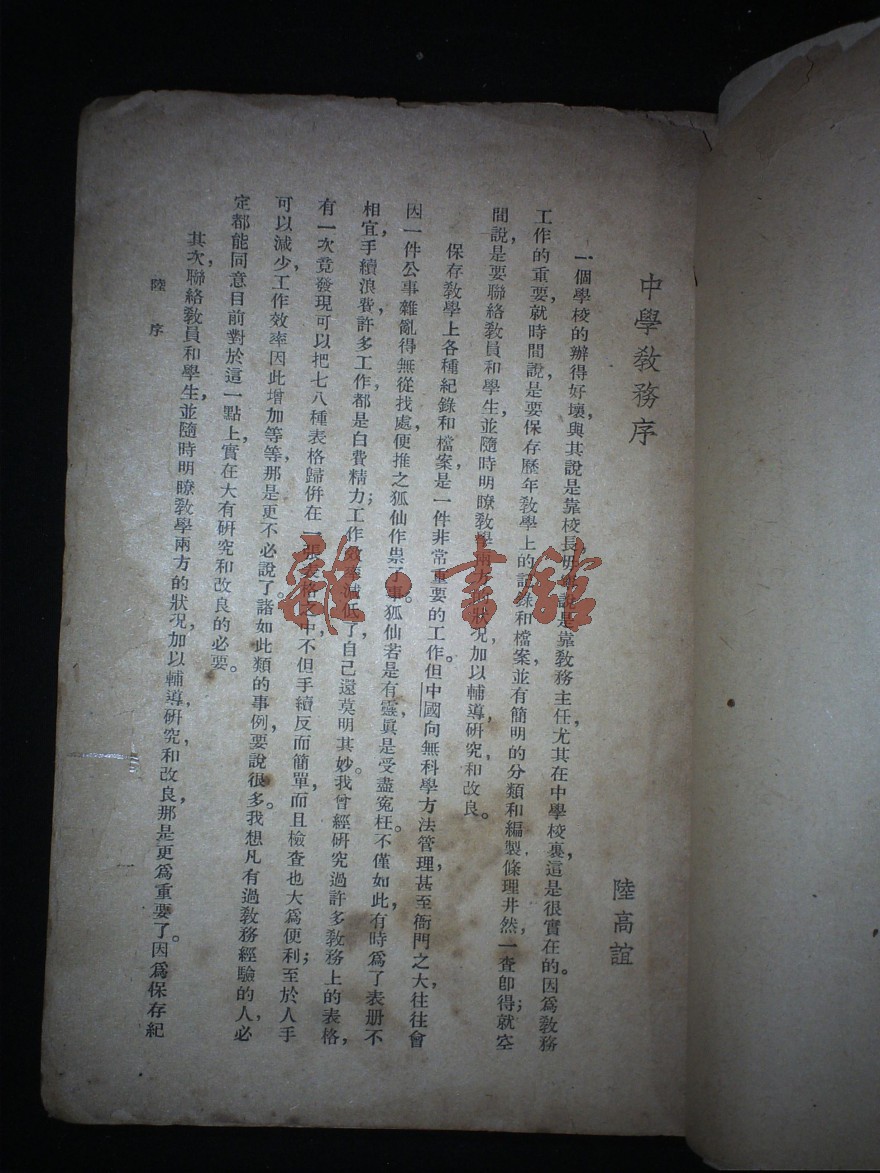 中學敎務序
陸高誼
一個學校的辦得好壞，與其說是靠校長，毋寧說是靠敎務主任，尤其在中學校裏，這是很實在的。因爲敎務
工作的重要，就時間說，是要保存歷年敎學上的記錄和檔案，並有簡明的分類和編製，條理井然，一查卽得；就空
間說，是要聯絡敎員和學生，並隨時明瞭敎學兩方的狀况，加以輔導，硏究，和改良。
保存敎學上各種紀錄和檔案，是一件非常重要的工作。但中國向無科學方法管理，甚至衙門之大，往往會
因一件公事雜亂得無從找處，便推之狐仙作祟了事。狐仙若是有靈，眞是受盡寃枉。不僅如此，有時爲了表册不
相宜，手續浪費，許多工作都是白費精力；工作效率減低了，自己還莫明其妙。我曾經硏究過許多敎務上的表格，
有一次竟發現可以把七八種表格歸併在一張表格之中，不但手續反而簡單，而且檢查也大爲便利；至於人手
可以減少，工作效率因此增加等等，那是更不必說了。諸如此類的事例，要說很多。我想凡有過敎務經驗的人，必
定都能同意目前對於這一點上，實在大有硏究和改良的必要。
其次，聯絡敎員和學生，並隨時明瞭敎學兩方的狀况，加以輔導，硏究，和改良，那是更爲重要了。因爲保存紀
陸序
雜·書館